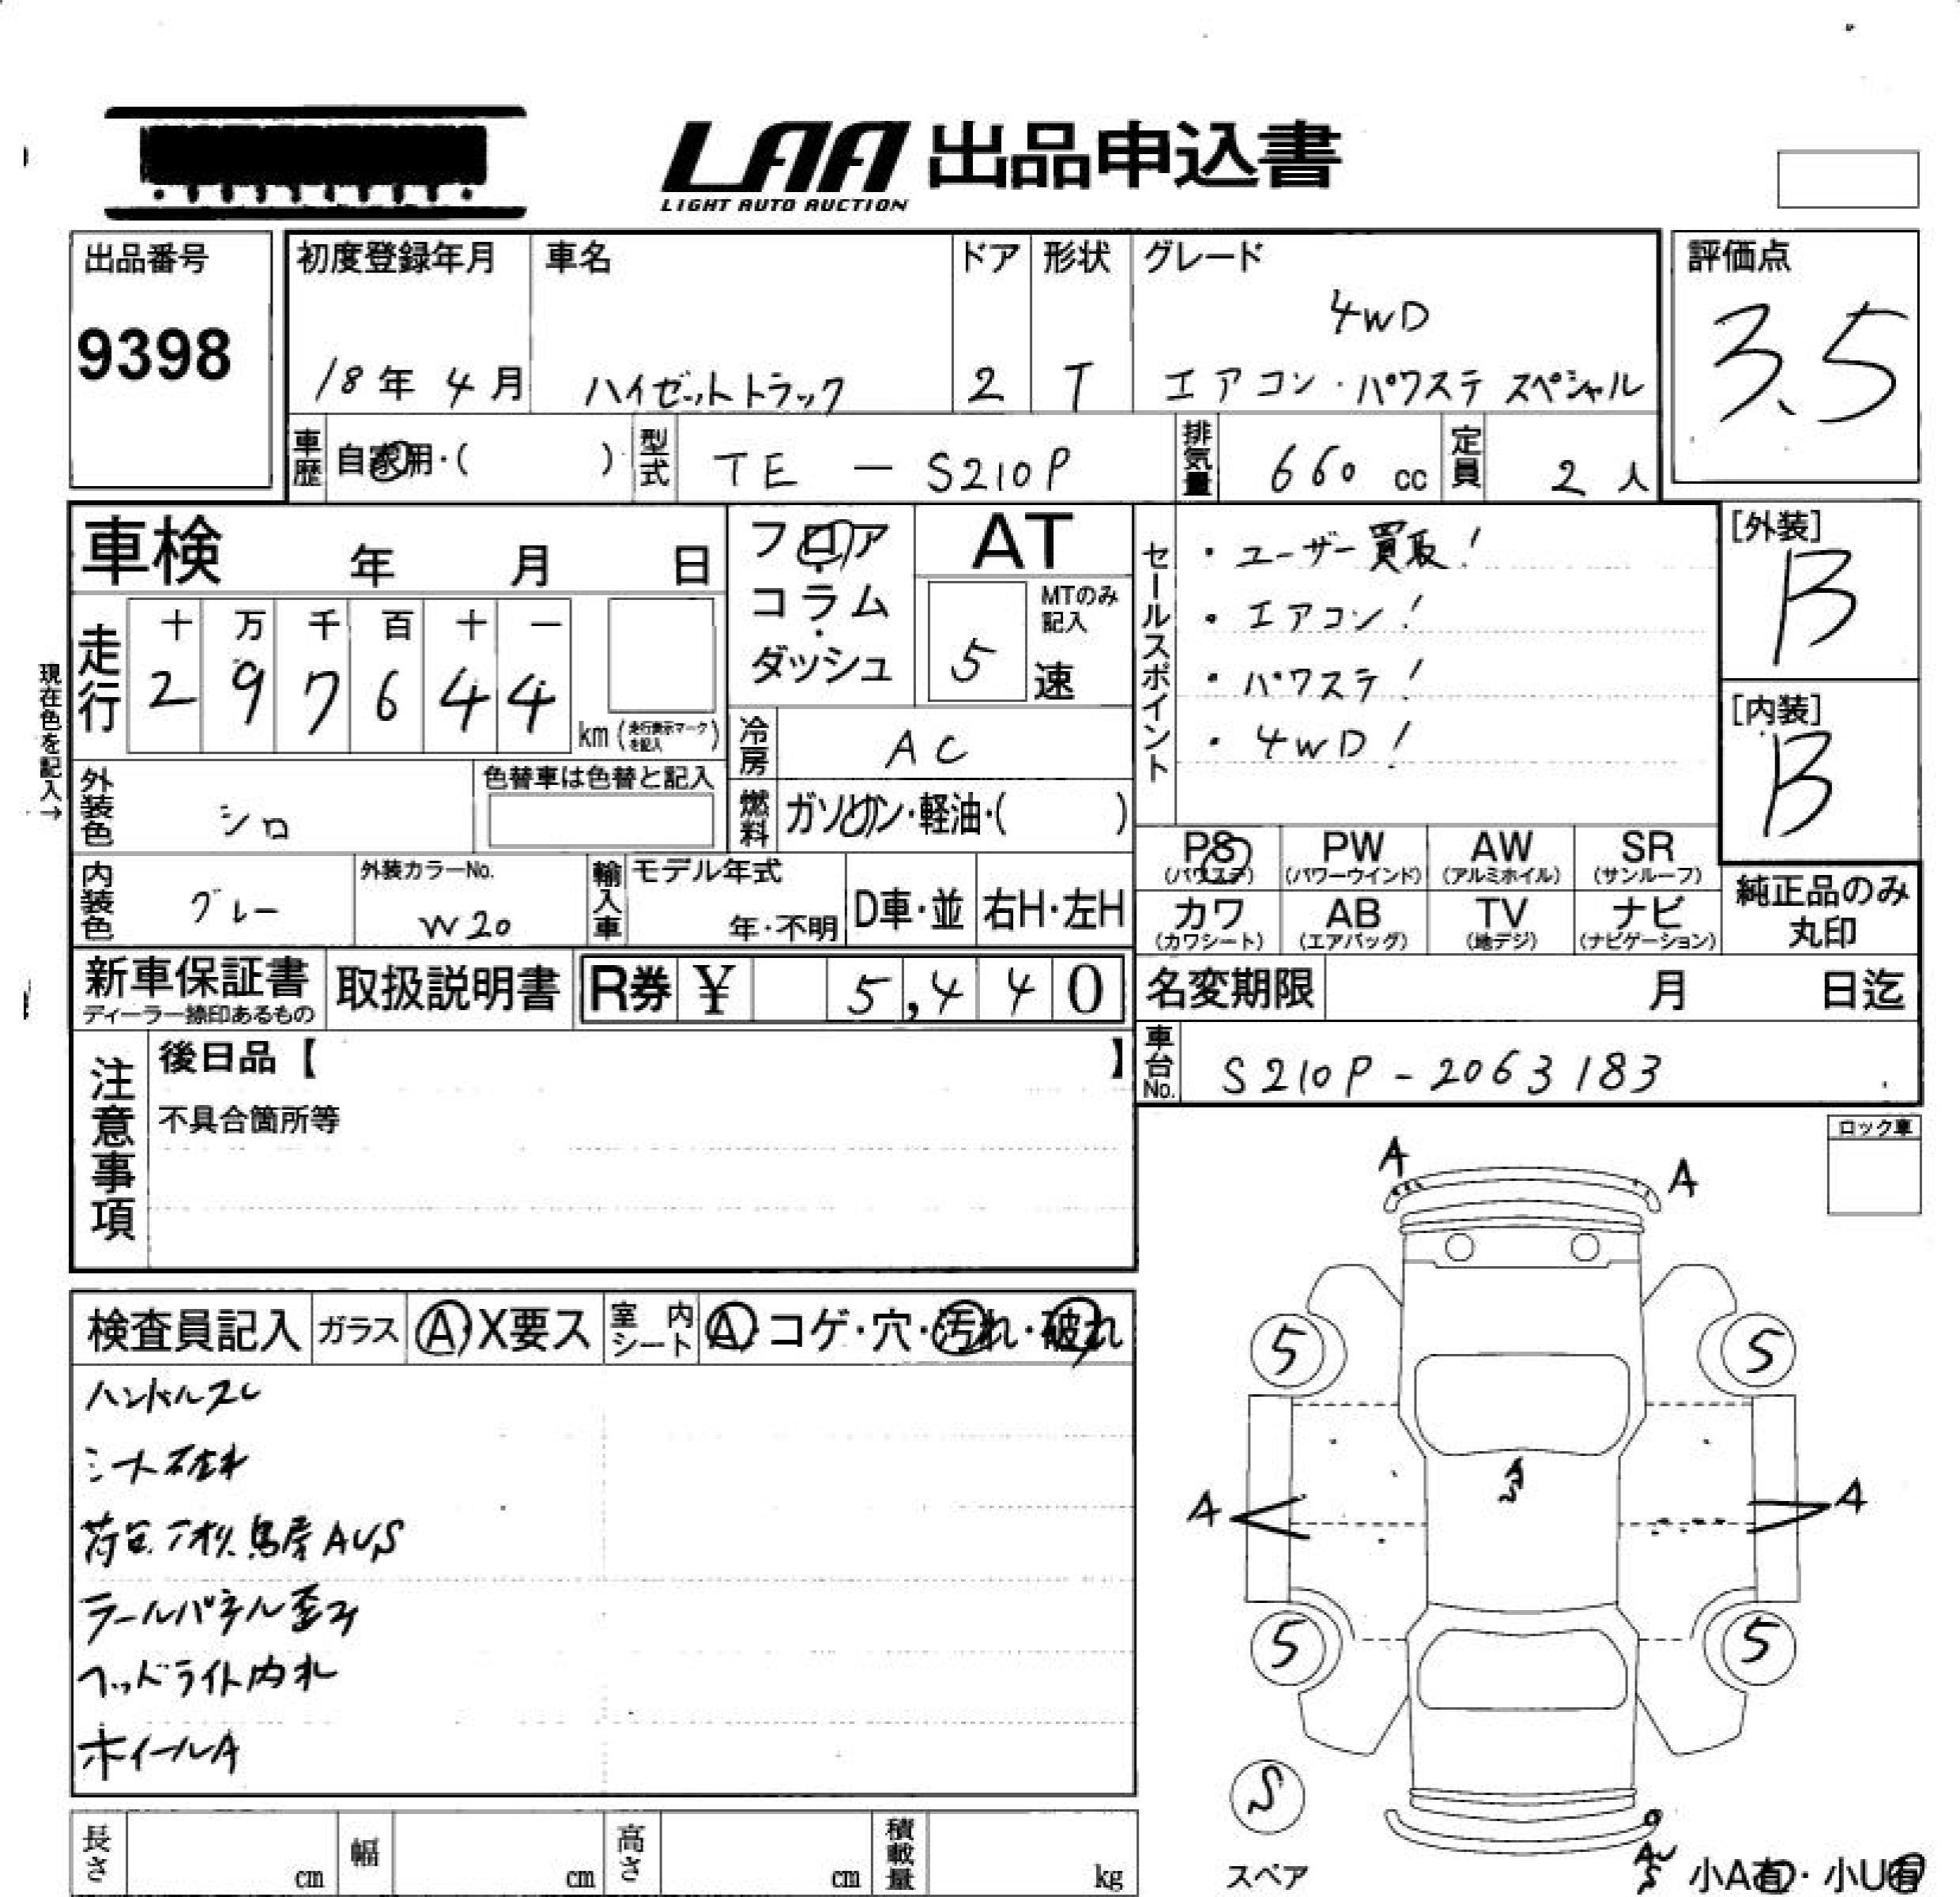 LAA 出品申込書
LIGHT AUTO AUCTION
出品番号
9398
初度登録年月
18年 4月
車名
ハイゼットトラック
ドア
2
形状
T
グレード
4WD
エアコン・パワステ スペシャル
評価点
3.5
車歴
自家用・( )
型式
TE - S210P
排気量
660 cc
定員
2 人
車検 年 月 日
フロア・コラム・ダッシュ
AT
MTのみ記入
5 速
現在色を記入→
走行
十 万 千 百 十 一
2 9 7 6 4 4
km (走行表示マークを記入)
外装色
シロ
色替車は色替と記入
冷房
AC
燃料
ガソリン・軽油・( )
内装色
グレー
外装カラーNo.
W20
輸入車
モデル年式
年・不明
D車・並
右H・左H
セールスポイント
・ユーザー買取!
・エアコン!
・パワステ!
・4WD!
[外装]
B
[内装]
B
PS (パワステ)
PW (パワーウインド)
AW (アルミホイル)
SR (サンルーフ)
カワ (カワシート)
AB (エアバッグ)
TV (地デジ)
ナビ (ナビゲーション)
純正品のみ丸印
新車保証書
ディーラー捺印あるもの
取扱説明書
R券 ¥ 5,440
名変期限 月 日迄
車台No.
S210P-2063183
注意事項
後日品【 】
不具合箇所等
ロック車
検査員記入
ガラス
A・X要ス
室内シート
A・コゲ・穴・汚れ・破れ
ハンドルスレ
シート破れ
荷台
鳥居AUS
テールパネル歪み
ヘッドライト内
ホイールA
A
A
5
5
A
S
A
A
5
5
S
スペア
AU
S
小A有・小U有
長さ cm
幅 cm
高さ cm
積載量 kg